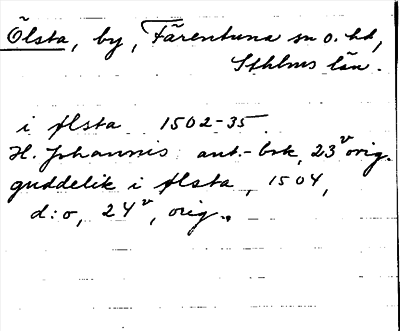 Ölsta, by, Färentuna sn o. hd,
Sthlms län.
i Ølsta 1502-35
H. Johannis ant.-bok, 23v orig.
guddelik i Ølsta, 1504,
d:o, 24v, orig.